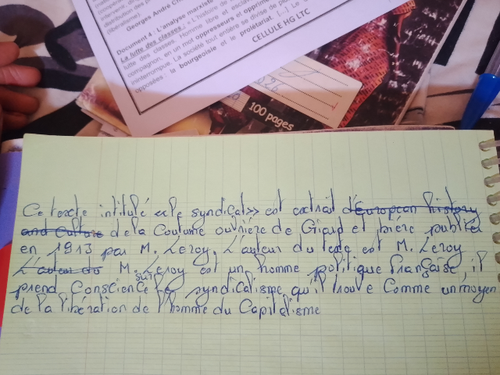 Georges André
Document 4 : L'analyse marxiste
La lutte des classes
compagnon, en un mot oppresseurs et
opposées : la bourgeoisie et le prolétariat. [...]
CELLULE HG LTC
100 pages
Ce texte intitulé « le syndicat » est extrait d'European history
and culture de la Coutume ouvrière de Giard et brière publié
en 1913 par M. Leroy. L'auteur du texte est M. Leroy
L'auteur du M. Leroy est un homme politique française, il
prend conscience sur syndicalisme qu'il trouve comme un moyen
de la libération de l'homme du Capitalisme